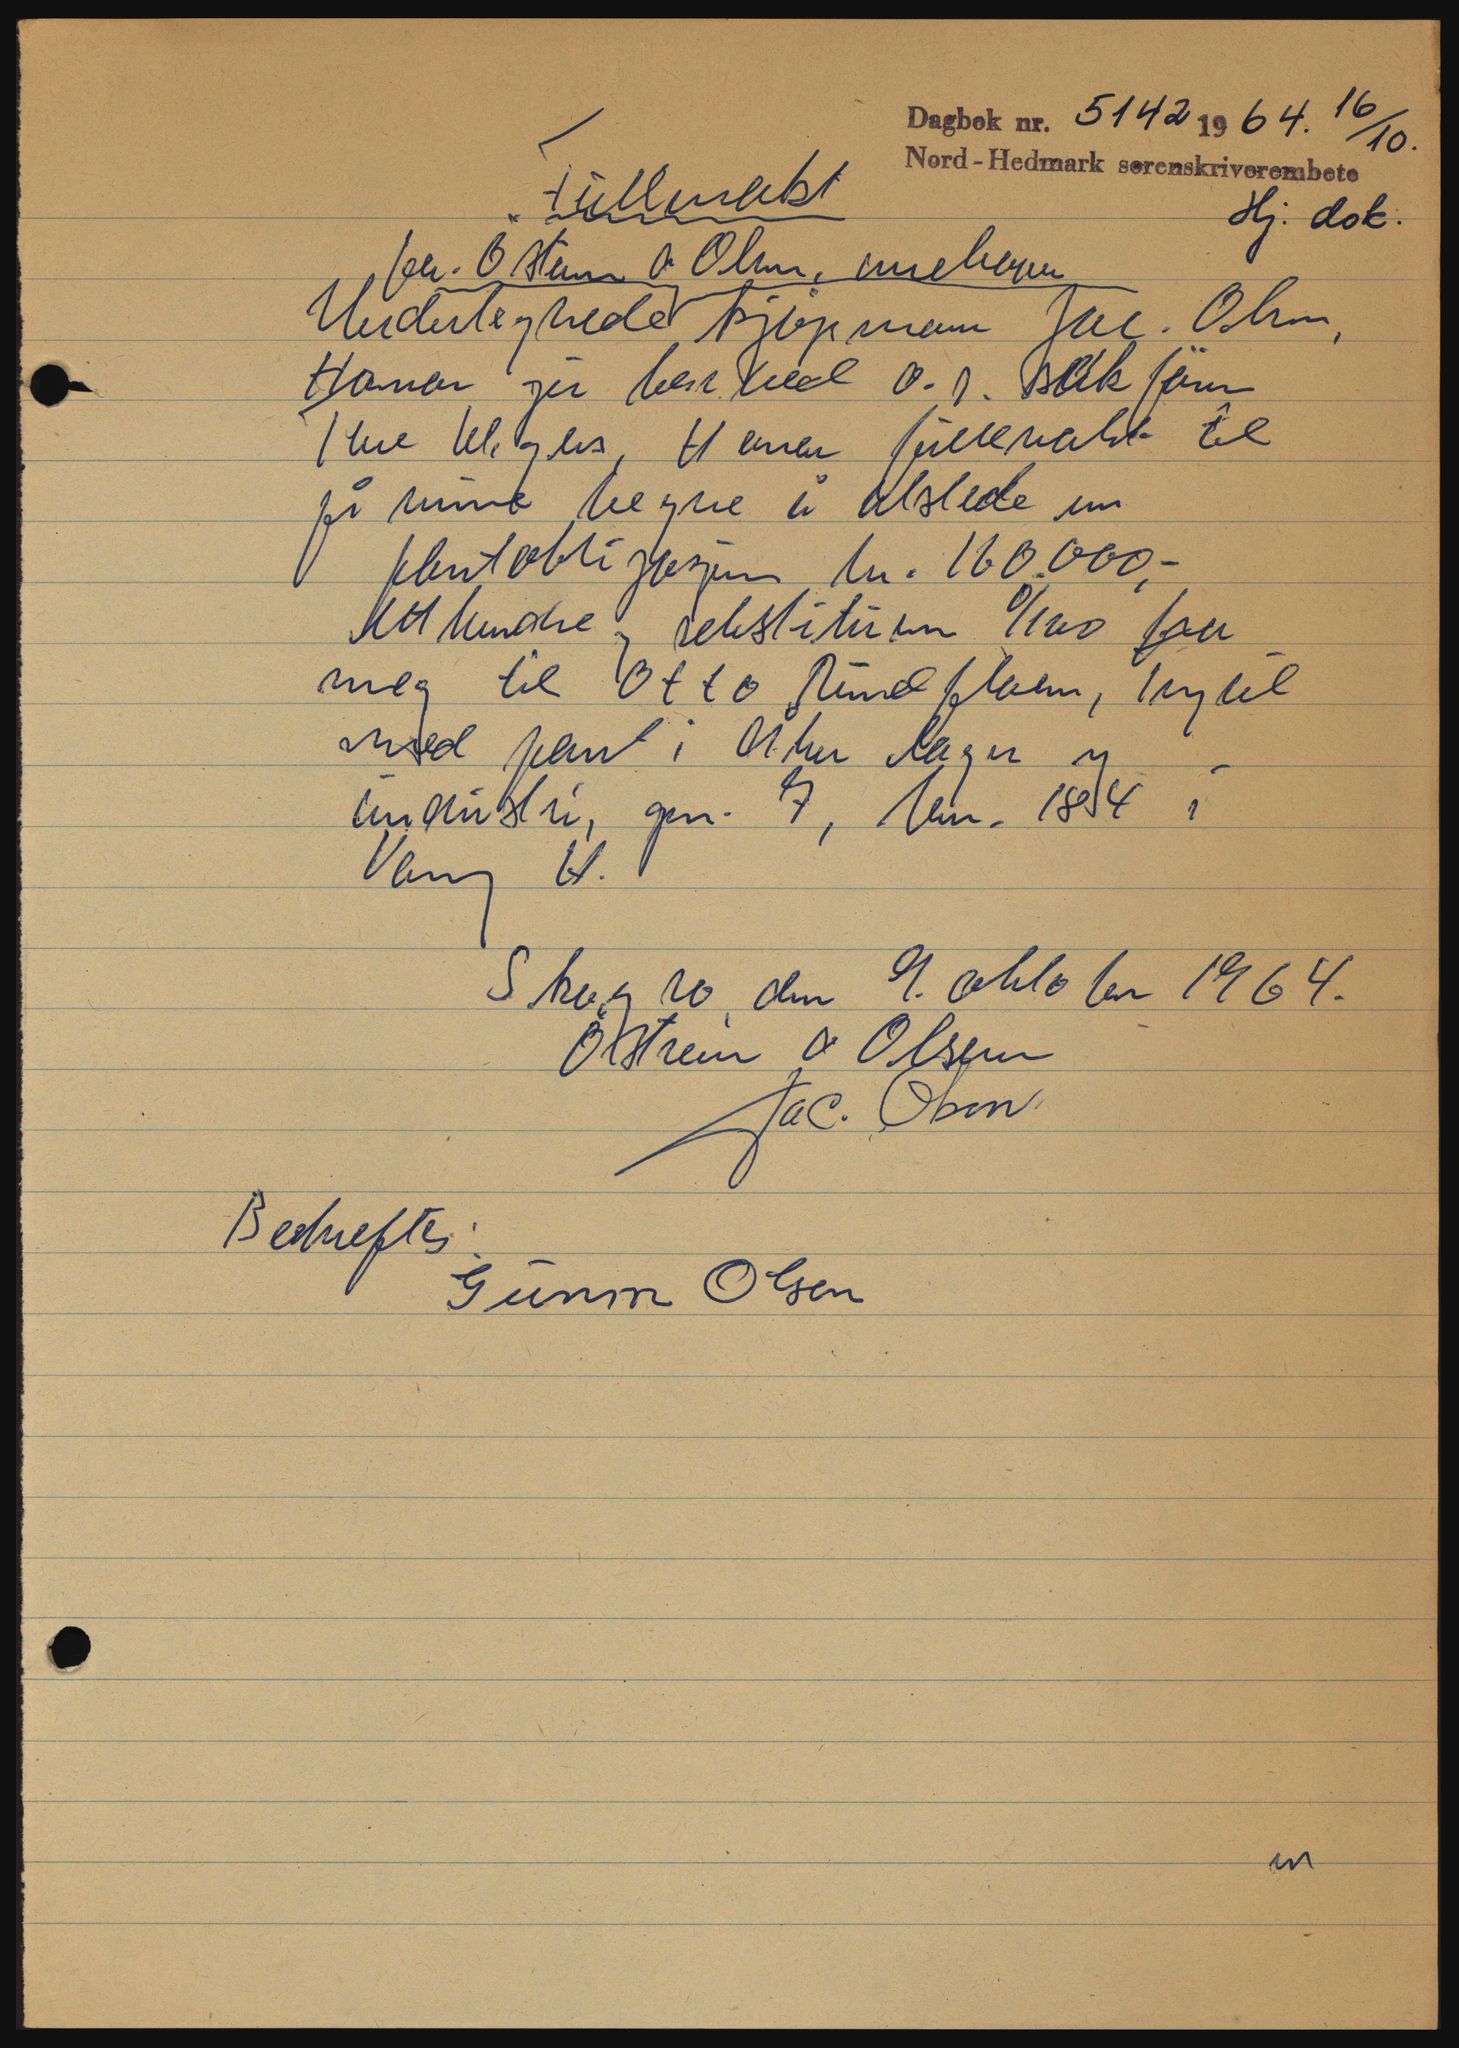 Dagbok nr. 5142 1964. 16/10.
Nord-Hedmark sorenskriverembete
Hj. dok.
Fullmakt
for Østrem & Olsen, innehaver
Undertegnede kjøpmann Jac. Olsen,
Hamar gir herved o.r. sakfører
Hamar fullmakt til
på mine vegne å utstede en
pantobligasjon kr. 160.000,-
etthundre og sekstitusen 0/100 fra
meg til Otto Rundfloen, Trysil
med pant i Åker lager og
industri, gnr. 7, bnr. 184 i
Vang H.
den 9. oktober 1964.
Østrem & Olsen
Jac. Olsen
Bedreftes:
Gunvor Olsen